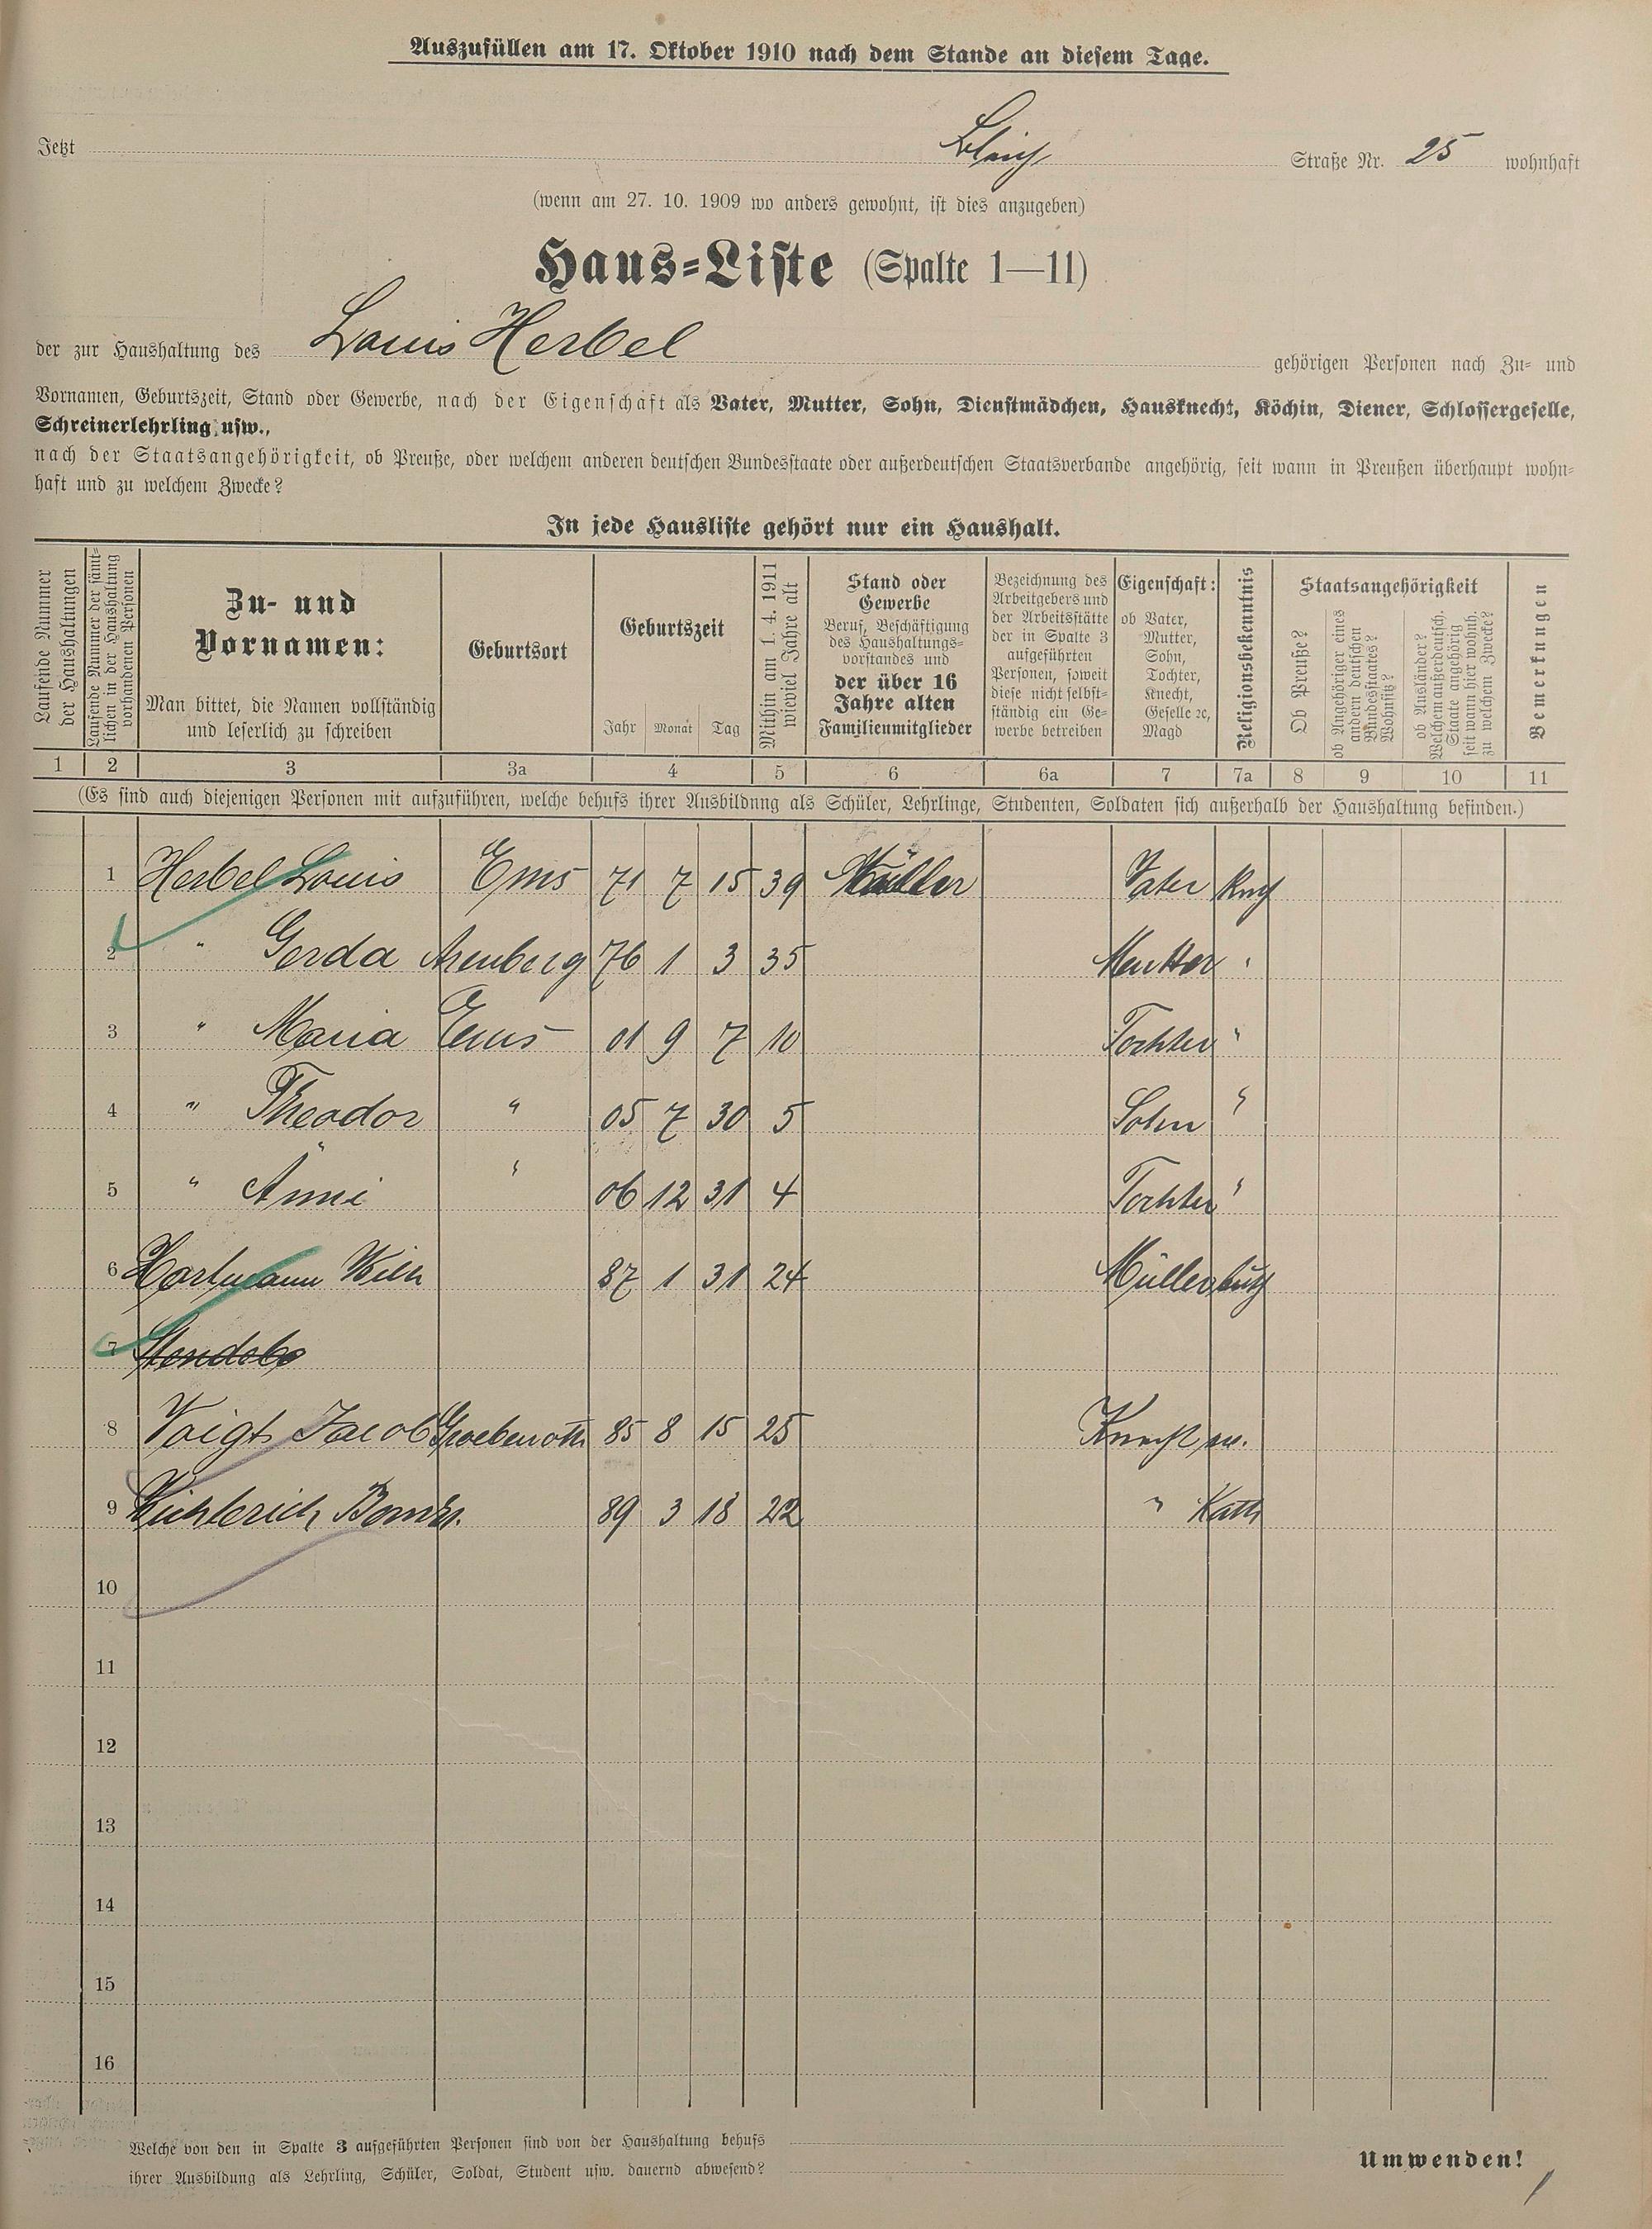 Auszufüllen am 17. Oktober 1910 nach dem Stande an diesem Tage.
Jetzt Straße Nr. 25 wohnhaft
(wenn am 27. 10. 1909 wo anders gewohnt, ist dies anzugeben)
Haus-Liste (Spalte 1—11)
der zur Haushaltung des Louis Herbel gehörigen Personen nach Zu- und
Vornamen, Geburtszeit, Stand oder Gewerbe, nach der Eigenschaft als Vater, Mutter, Sohn, Dienstmädchen, Hausknecht, Köchin, Diener, Schlossergeselle,
Schreinerlehrling usw.,
nach der Staatsangehörigkeit, ob Preuße, oder welchem anderen deutschen Bundesstaate oder außerdeutschen Staatsverbande angehörig, seit wann in Preußen überhaupt wohn-
haft und zu welchem Zwecke?
In jede Hausliste gehört nur ein Haushalt.
Laufende Nummer
der Haushaltungen
Laufende Nummer der sämt-
lichen in der Haushaltung
vorhandenen Personen
Zu- und
Vornamen:
Man bittet, die Namen vollständig
und leserlich zu schreiben
Geburtsort
Geburtszeit
Jahr Monat Tag
Mithin am 1. 4. 1911
wieviel Jahre alt
Stand oder
Gewerbe
Beruf, Beschäftigung
des Haushaltungs-
vorstandes und
der über 16
Jahre alten
Familienmitglieder
Bezeichnung des
Arbeitgebers und
der Arbeitsstätte
der in Spalte 3
aufgeführten
Personen, soweit
diese nicht selbst-
ständig ein Ge-
werbe betreiben
Eigenschaft:
ob Vater,
Mutter,
Sohn,
Tochter,
Knecht,
Geselle ec,
Magd
Religionsbekenntnis
Staatsangehörigkeit
Ob Preuße?
ob Angehöriger eines
andern deutschen
Bundesstaates?
Wohnsitz?
ob Ausländer?
Welchem außerdeutsch.
Staate angehörig
seit wann hier wohnh.
zu welchem Zwecke?
Bemerkungen
1 2 3 3a 4 5 6 6a 7 7a 8 9 10 11
(Es sind auch diejenigen Personen mit aufzuführen, welche behufs ihrer Ausbildung als Schüler, Lehrlinge, Studenten, Soldaten sich außerhalb der Haushaltung befinden.)
1 Herbel Louis Ems 71 7 15 39 Müller Vater
2 " Gerda Arenberg 76 1 3 35 Mutter "
3 " Maria Ems 01 9 7 10 Tochter "
4 " Theodor " 05 7 30 5 Sohn "
5 " Änni " 06 12 31 4 Tochter "
6 Hartmann Wilh 87 1 31 24
7
8 Voigt Jacob 85 8 15 25 Knecht
9 89 3 18 22 " Kath
10
11
12
13
14
15
16
Welche von den in Spalte 3 aufgeführten Personen sind von der Haushaltung behufs
ihrer Ausbildung als Lehrling, Schüler, Soldat, Student usw. dauernd abwesend?
Umwenden!